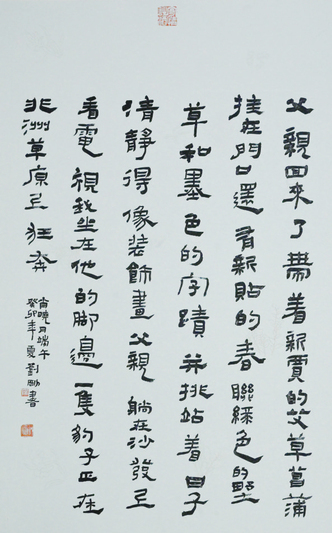 父親回來了帶着新買的艾草菖蒲
挂在門口還有新貼的春聯綠色的野
草和墨色的字蹟并挑站着日子
清靜得像裝飾畫父親躺在沙發上
看電視我坐在他的腳邊一隻豹子正在
非洲草原上狂奔
宙曉月端午
癸卯年夏劉剛書